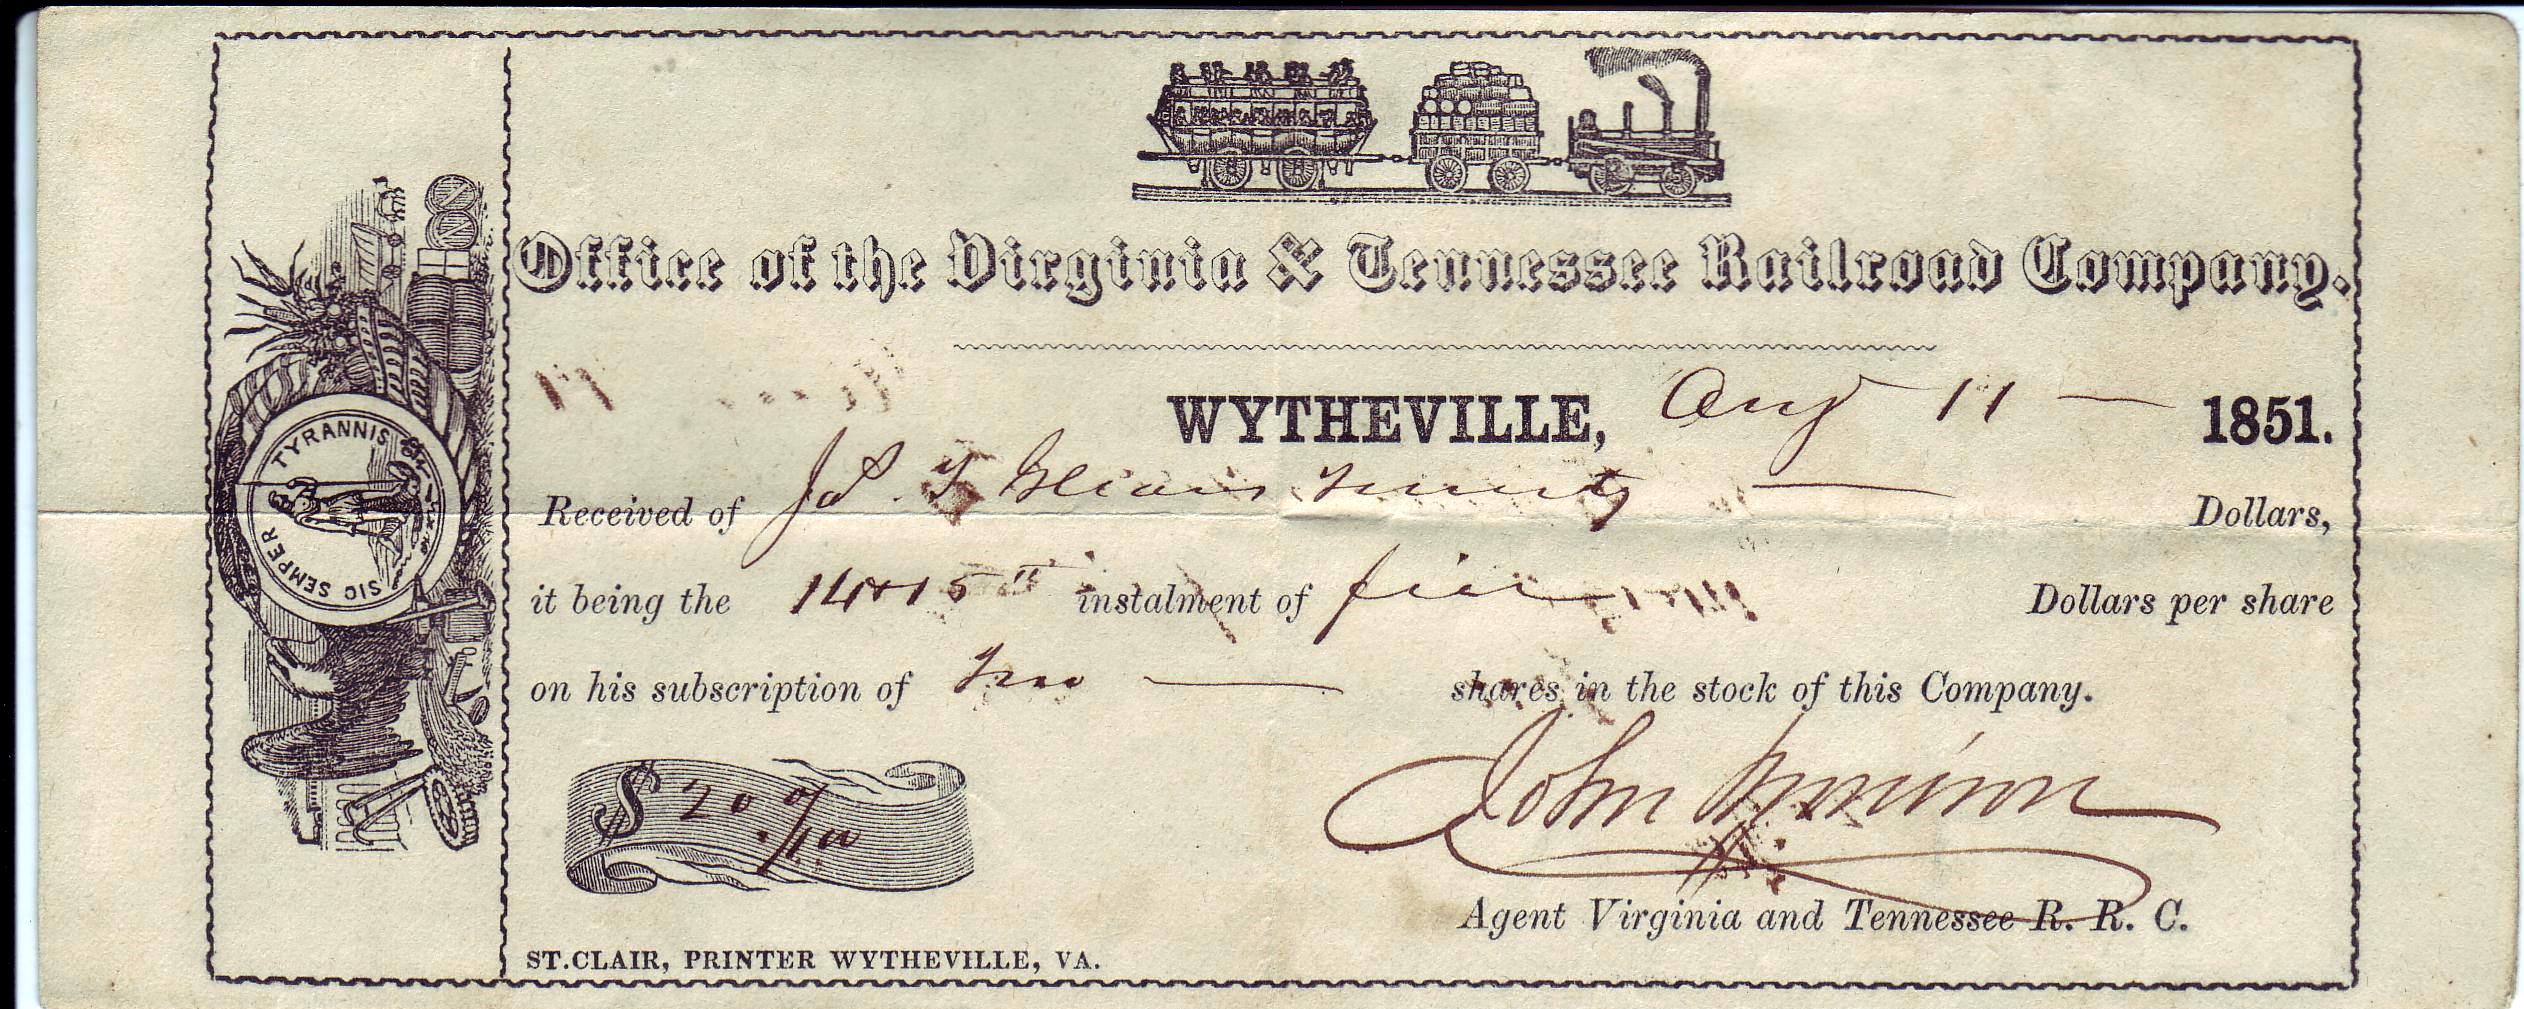 Office of the Virginia & Tennessee Railroad Company.
WYTHEVILLE, Aug 11 — 1851.
Received of Jas. T. twenty — Dollars,
it being the 14 & 15th instalment of five Dollars per share
on his subscription of two — shares in the stock of this Company.
$ 20.00/100
John
Agent Virginia and Tennessee R. R. C.
ST.CLAIR, PRINTER WYTHEVILLE, VA.
SIC SEMPER TYRANNIS